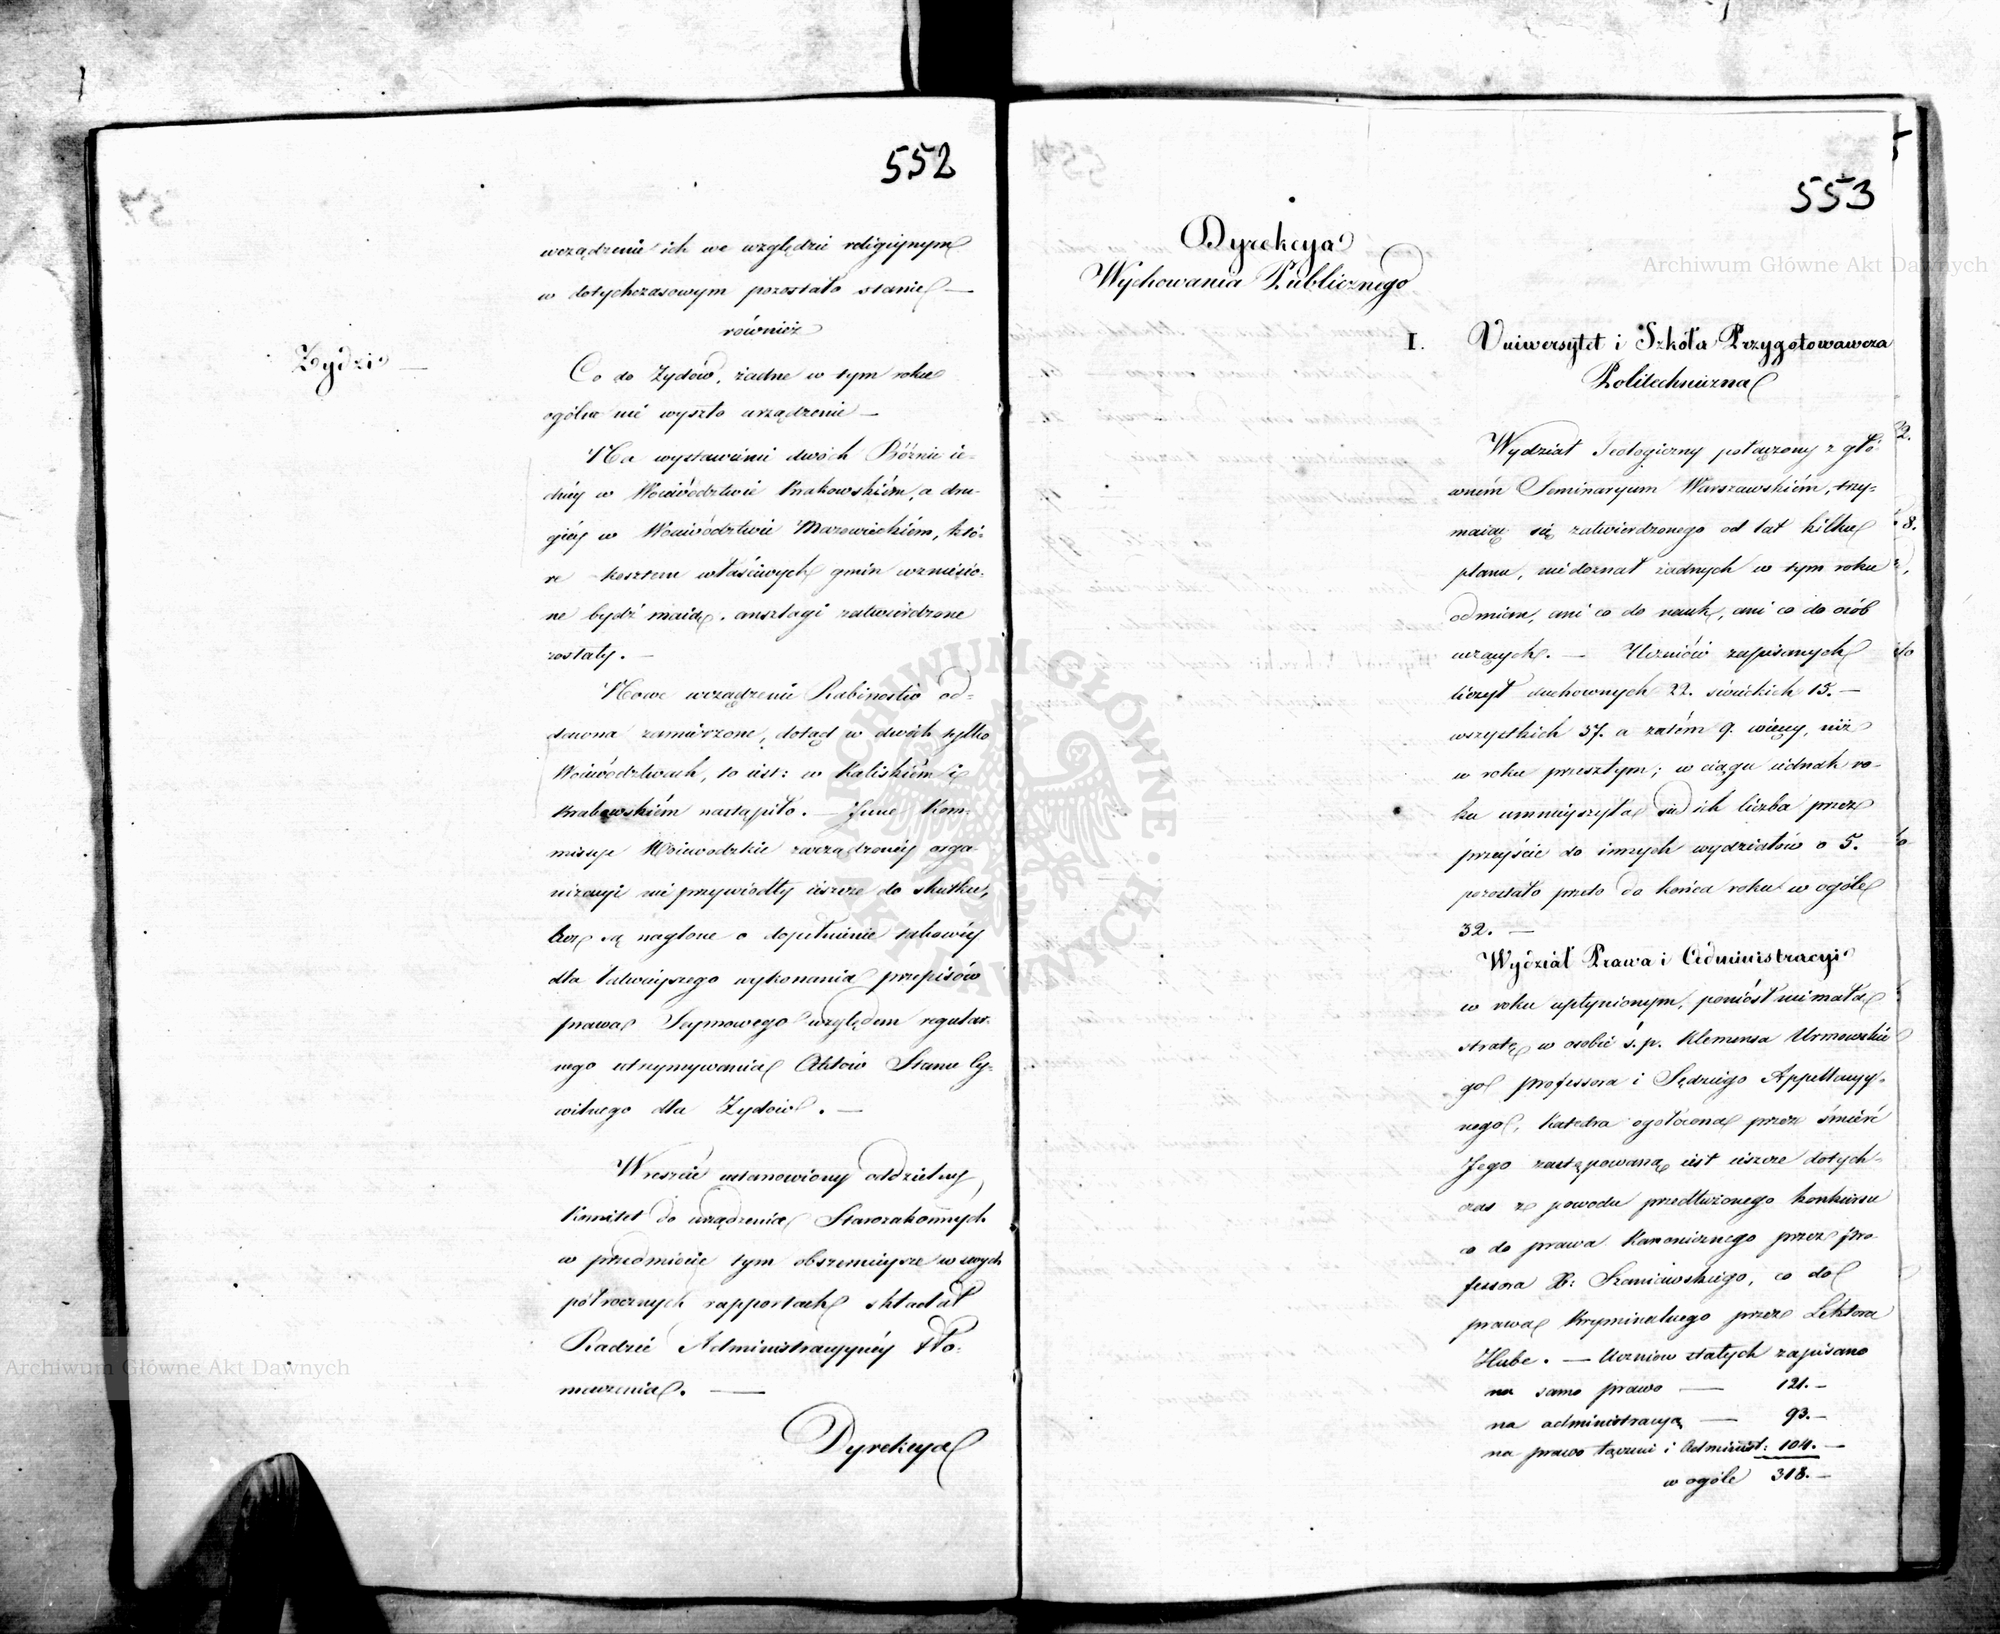 552
urządzenie ich we względzie religijnym
w dotychczasowym pozostało stanie —
również
Żydzi —
Co do Żydów, żadne w tym roku
ogólne nie wyszło urządzenie —
Na wystawienie dwóch Bóżnic ie-
dnéy w Woiewództwie Krakowskiém, a dru-
giéy w Woiewództwie Mazowieckiém, któ-
re kosztem właściwych gmin wzniesio-
ne bydź maią, anszlagi zatwierdzone
zostały. —
Nowe urządzenie Rabinostw od-
dawna zamierzone, dotąd w dwóch tylko
Woiewództwach, to iest: w Kaliskiém i
Krakowskiém nastąpiło. — Inne Kom-
missye Woiewodzkie zarządzonéy orga-
nizacyi nie przywiodły ieszcze do skutku,
lecz są naglone o dopełnienie takowéy
dla łatwieyszego wykonania przepisów
prawa Seymowego względem regular-
nego utrzymywania Aktów Stanu Cy-
wilnego dla Żydów. —
Wreszcie ustanowiony oddzielny
Komitet do urządzenia Starozakonnych
w przedmiocie tym obszernieysze w swych
półrocznych rapportach składał
Radzie Administracyynéy tło-
maczenia. —
Dyrekcya
553
Dyrekcya
Wychowania Publicznego
I. Uniwersytet i Szkoła Przygotowawcza
Politechniczna
Wydział Teologiczny połączony z głó-
wném Seminaryum Warszawskiém, trzy-
maiąc się zatwierdzonego od lat kilku
planu, niedoznał żadnych w tym roku
odmian, ani co do nauk, ani co do osób
uczących. — Uczniów zapisanych
liczył duchownych 22. świeckich 15. —
wszystkich 37. a zatém 9. więcéy, niż
w roku przeszłym; w ciągu iednak ro-
ku umnieyszyła się ich liczba przez
przeyście do innych wydziałów o 5.
pozostało przeto do końca roku w ogóle
32. —
Wydział Prawa i Administracyi
w roku upłynionym, poniósł niemałą
stratę w osobie ś. p. Klemensa Urmowskie
go professora i Sędziego Appellacyy-
nego, Katedra ogołocona przez śmierć
Jego zastępowaną iest ieszcze dotych-
czas z powodu przedłużonego konkursu
co do prawa Kanonicznego przez pro-
fessora X: Szaniawskiego, co do
prawa Kryminalnego przez Lektora
Hube. — Uczniów stałych zapisano
na samo prawo — 121. —
na administracyą — 93. —
na prawo łącznie i Administ: 104. —
w ogóle 318. —
Archiwum Główne Akt Dawnych
Archiwum Główne Akt Dawnych
ARCHIWUM GŁÓWNE AKT DAWNYCH